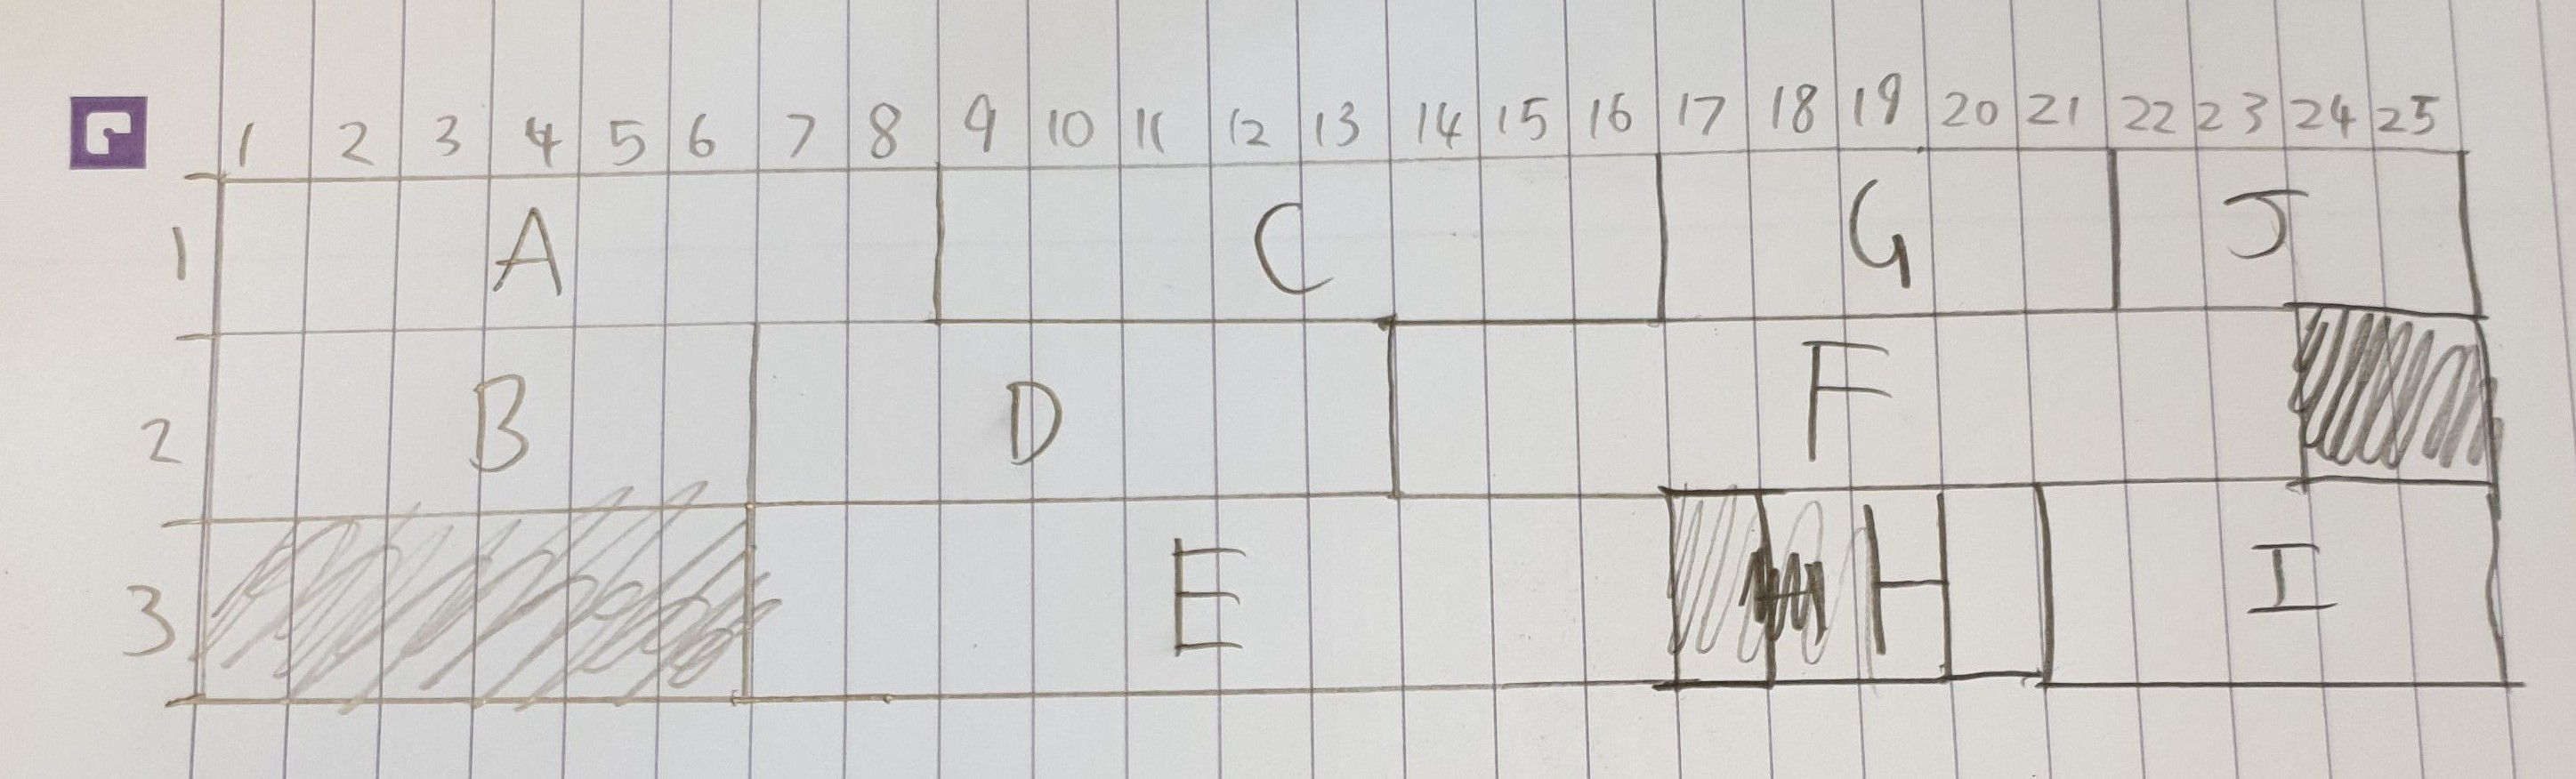 1 2 3 4 5 6 7 8 9 10 11 12 13 14 15 16 17 18 19 20 21 22 23 24 25
1 A C G J
2 B D F
3 E H I